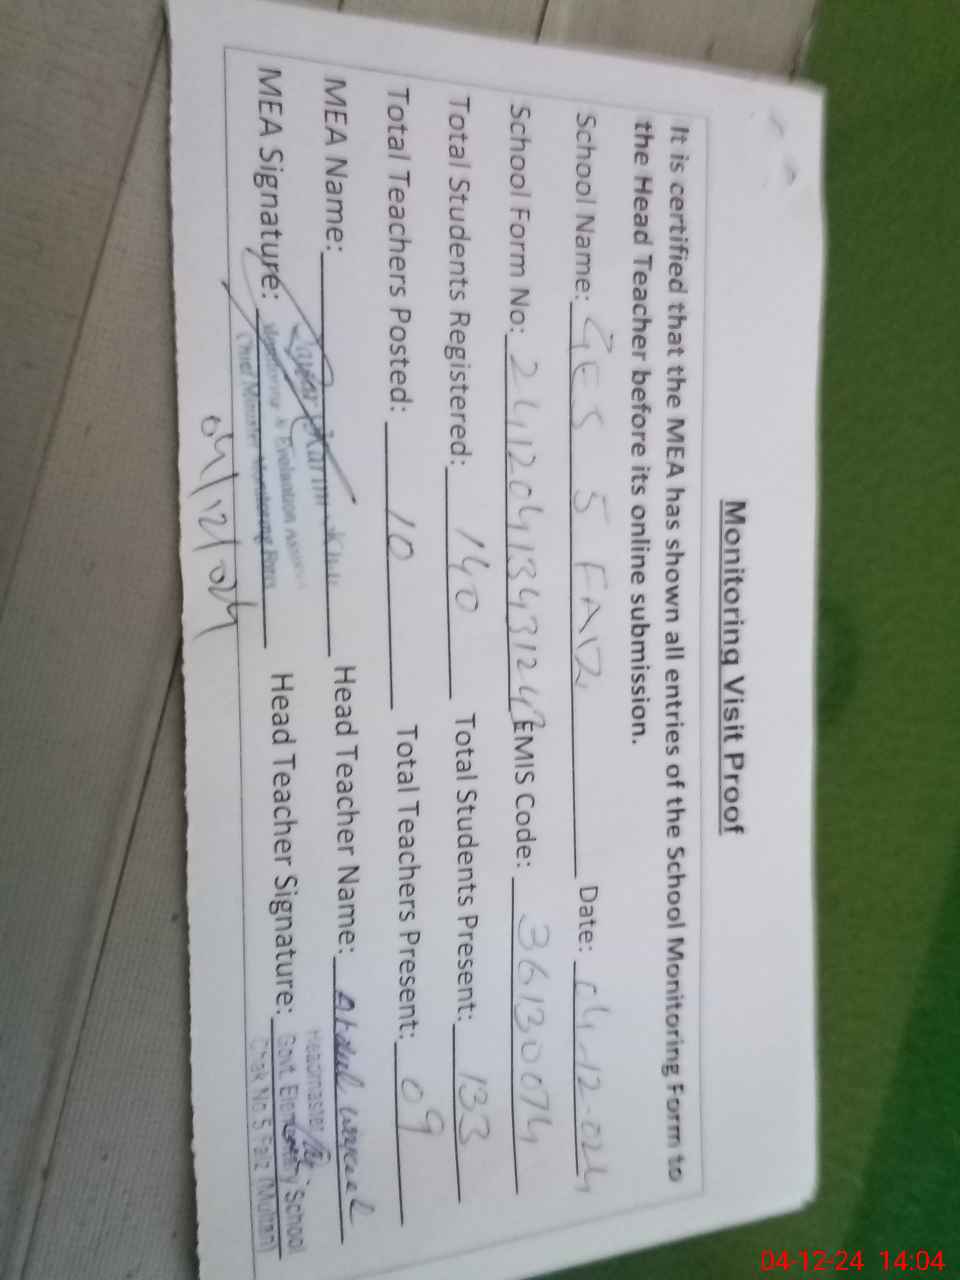 Monitoring Visit Proof
It is certified that the MEA has shown all entries of the School Monitoring Form to
the Head Teacher before its online submission.
School Name: GES 5 FAIZ Date: 04-12-024
School Form No: EMIS Code: 36130074
Total Students Registered: 140 Total Students Present: 133
Total Teachers Posted: 10 Total Teachers Present: 09
MEA Name: Head Teacher Name: Abdul
MEA Signature: Head Teacher Signature:
Monitoring & Evaluation
Chief Minister Monitoring
04/12/024
Headmaster
Govt. Elementary School
Chak No.5 Faiz (Multan)
04-12-24 14:04